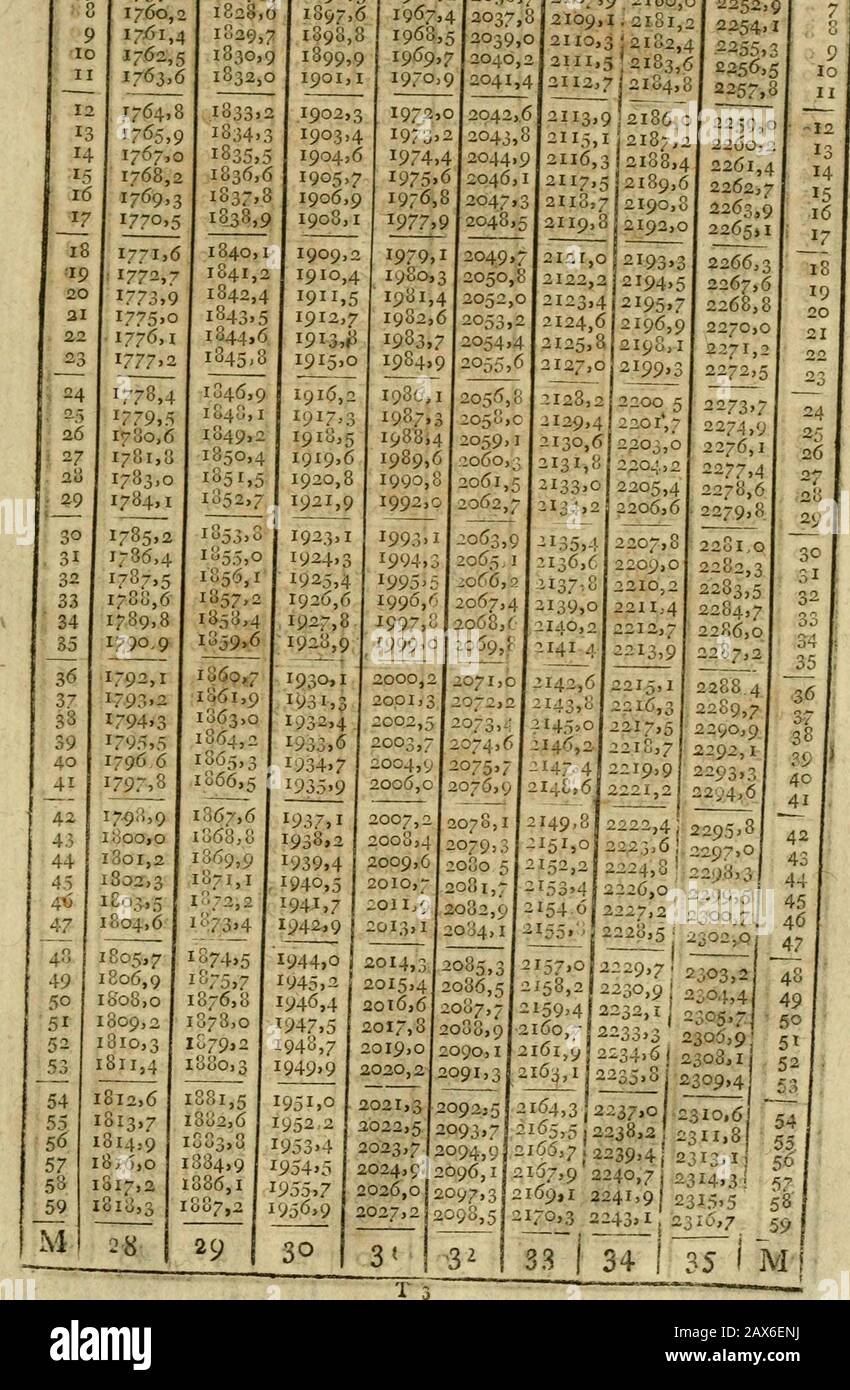 8 1760,2 1828,6 1897,6 1967,4 2037,8 2109,1 2181,2 2254,1 8
9 1761,4 1829,7 1898,8 1968,5 2039,0 2110,3 2182,4 2255,3 9
10 1762,5 1830,9 1899,9 1969,7 2040,2 2111,5 2183,6 2256,5 10
11 1763,6 1832,0 1901,1 1970,9 2041,4 2112,7 2184,8 2257,8 11
12 1764,8 1833,2 1902,3 1972,0 2042,6 2113,9 2186,0 2259,0 12
13 1765,9 1834,3 1903,4 1973,2 2043,8 2115,1 2187,2 2260,2 13
14 1767,0 1835,5 1904,6 1974,4 2044,9 2116,3 2188,4 2261,4 14
15 1768,2 1836,6 1905,7 1975,6 2046,1 2117,5 2189,6 2262,7 15
16 1769,3 1837,8 1906,9 1976,8 2047,3 2118,7 2190,8 2263,9 16
17 1770,5 1838,9 1908,1 1977,9 2048,5 2119,8 2192,0 2265,1 17
18 1771,6 1840,1 1909,2 1979,1 2049,7 2121,0 2193,3 2266,3 18
19 1772,7 1841,2 1910,4 1980,3 2050,8 2122,2 2194,5 2267,6 19
20 1773,9 1842,4 1911,5 1981,4 2052,0 2123,4 2195,7 2268,8 20
21 1775,0 1843,5 1912,7 1982,6 2053,2 2124,6 2196,9 2270,0 21
22 1776,1 1844,6 1913,8 1983,7 2054,4 2125,8 2198,1 2271,2 22
23 1777,2 1845,8 1915,0 1984,9 2055,6 2127,0 2199,3 2272,5 23
24 1778,4 1846,9 1916,2 1986,1 2056,8 2128,2 2200 5 2273,7 24
25 1779,5 1848,1 1917,3 1987,3 2058,0 2129,4 2201,7 2274,9 25
26 1780,6 1849,2 1918,5 1988,4 2059,1 2130,6 2203,0 2276,1 26
27 1781,8 1850,4 1919,6 1989,6 2060,3 2131,8 2204,2 2277,4 27
28 1783,0 1851,5 1920,8 1990,8 2061,5 2133,0 2205,4 2278,6 28
29 1784,1 1852,7 1921,9 1992,0 2062,7 2134,2 2206,6 2279,8 29
30 1785,2 1853,8 1923,1 1993,1 2063,9 2135,4 2207,8 2281 0 30
31 1786,4 1855,0 1924,3 1994,3 2065 1 2136,6 2209,0 2282,3 31
32 1787,5 1856,1 1925,4 1995,5 2066,2 2137,8 2210,2 2283,5 32
33 1788,6 1857,2 1926,6 1996,6 2067,4 2139,0 2211,4 2284,7 33
34 1789,8 1858,4 1927,8 1997,8 2068,6 2140,2 2212,7 2286,0 34
35 1790 9 1859,6 1928,9 1999,0 2069,8 2141 4 2213,9 2287,2 35
36 1792,1 1860,7 1930,1 2000,2 2071,0 2142,6 2215,1 2288 4 36
37 1793,2 1861,9 1931,3 2001,3 2072,2 2143,8 2216,3 2289,7 37
38 1794,3 1863,0 1932,4 2002,5 2073,4 2145,0 2217,5 2290,9 38
39 1795,5 1864,2 1933,6 2003,7 2074,6 2146,2 2218,7 2292,1 39
40 1796 6 1865,3 1934,7 2004,9 2075,7 2147,4 2219,9 2293,3 40
41 1797,8 1866,5 1935,9 2006,0 2076,9 2148,6 2221,2 2294,6 41
42 1798,9 1867,6 1937,1 2007,2 2078,1 2149,8 2222,4 2295,8 42
43 1800,0 1868,8 1938,2 2008,4 2079,3 2151,0 2223,6 2297,0 43
44 1801,2 1869,9 1939,4 2009,6 2080 5 2152,2 2224,8 2298,3 44
45 1802,3 1871,1 1940,5 2010,7 2081,7 2153,4 2226,0 45
46 1803,5 1872,2 1941,7 2011,9 2082,9 2154 6 2227,2 2300,7 46
47 1804,6 1873,4 1942,9 2013,1 2084,1 2155,8 2228,5 2302,0 47
48 1805,7 1874,5 1944,0 2014,3 2085,3 2157,0 2229,7 2303,2 48
49 1806,9 1875,7 1945,2 2015,4 2086,5 2158,2 2230,9 2304,4 49
50 1808,0 1876,8 1946,4 2016,6 2087,7 2159,4 2232,1 2305,7 50
51 1809,2 1878,0 1947,5 2017,8 2088,9 2160,7 2233,3 2306,9 51
52 1810,3 1879,2 1948,7 2019,0 2090,1 2161,9 2234,6 2308,1 52
53 1811,4 1880,3 1949,9 2020,2 2091,3 2163,1 2235,8 2309,4 53
54 1812,6 1881,5 1951,0 2021,3 2092,5 2164,3 2237,0 2310,6 54
55 1813,7 1882,6 1952,2 2022,5 2093,7 2165,5 2238,2 2311,8 55
56 1814,9 1883,8 1953,4 2023,7 2094,9 2166,7 2239,4 2313,1 56
57 1816,0 1884,9 1954,5 2024,9 2096,1 2167,9 2240,7 2314,3 57
58 1817,2 1886,1 1955,7 2026,0 2097,3 2169,1 2241,9 2315,5 58
59 1818,3 1887,2 1956,9 2027,2 2098,5 2170,3 2243,1 2316,7 59
M 28 29 30 31 32 33 34 35 M
T 3
alamy
Image ID: 2AX6ENJ
www.alamy.com